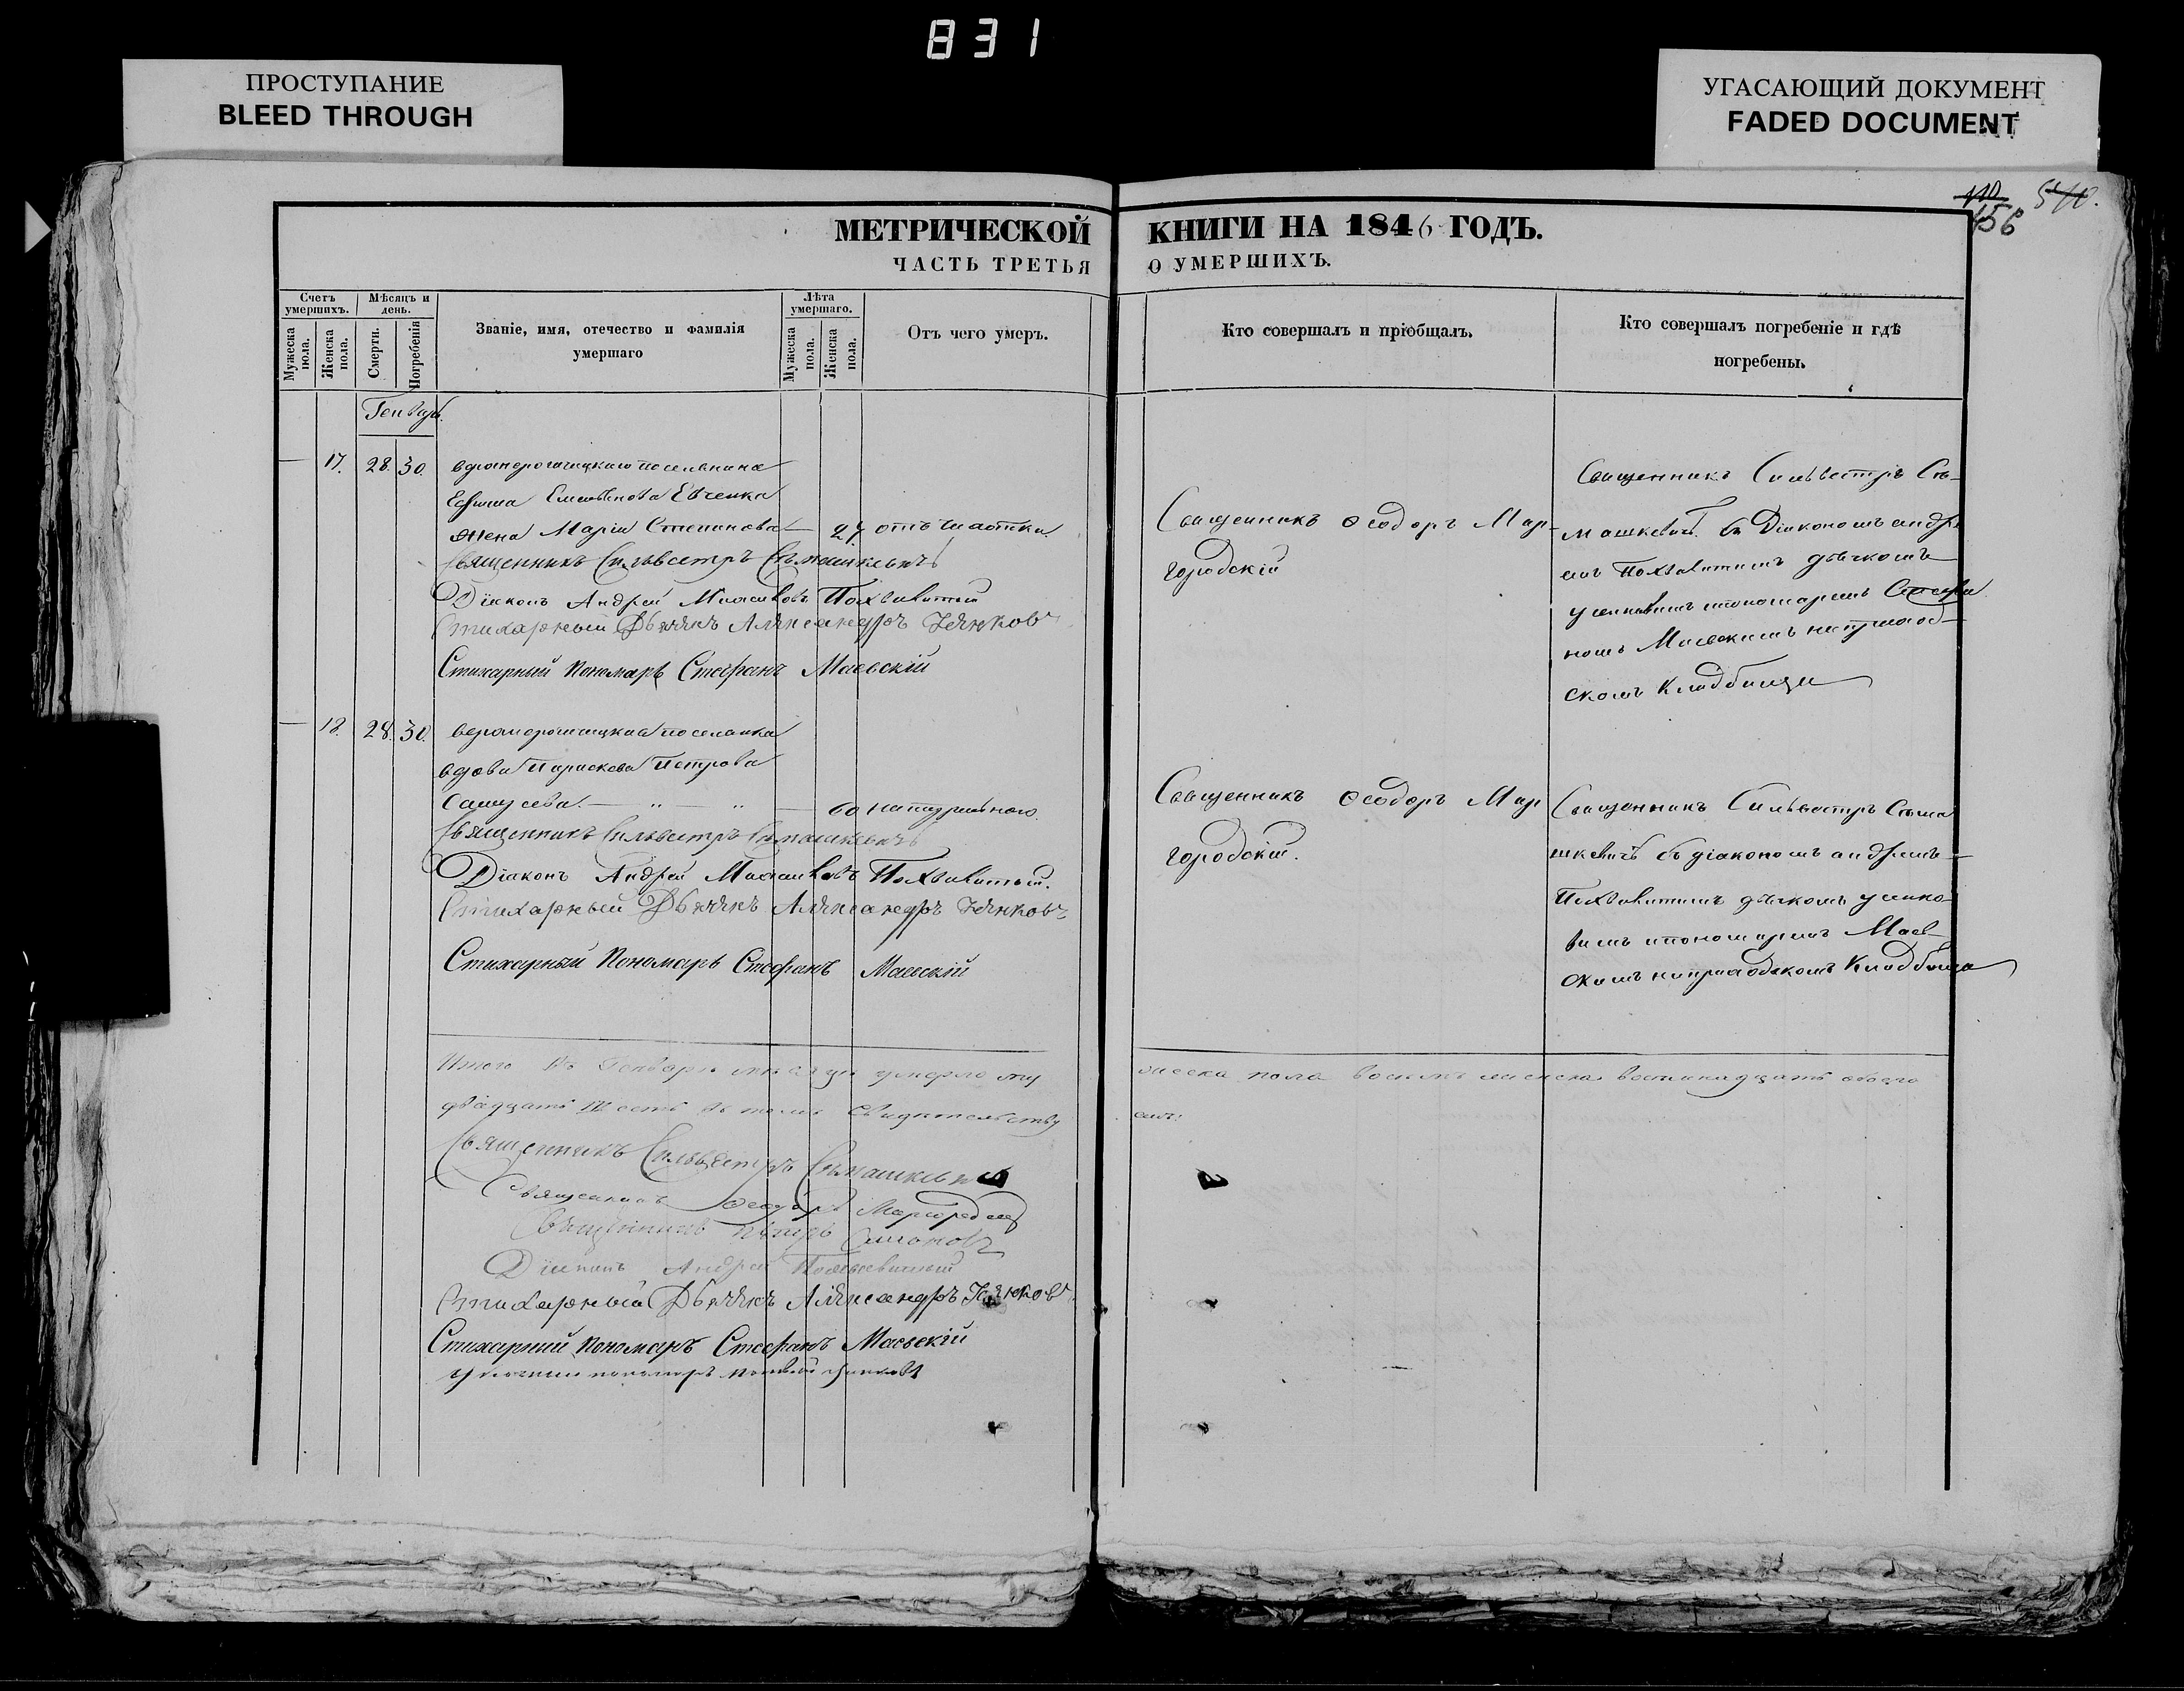 831
ПРОСТУПАНИЕ
BLEED THROUGH
УГАСАЮЩИЙ ДОКУМЕНТ
FADED DOCUMENT
110 510.
456
МЕТРИЧЕСКОЙ КНИГИ НА 1846 ГОДЪ.
ЧАСТЬ ТРЕТЬЯ О УМЕРШИХЪ.
Счетъ умершихъ.
Мужеска пола.
Женска пола.
Мѣсяцъ и день.
Смерти.
Погребенія
Званіе, имя, отечество и фамилія
умершаго
Лѣта умершаго.
Мужеска пола.
Женска пола.
Отъ чего умеръ.
Кто совершалъ и пріобщалъ.
Кто совершалъ погребеніе и гдѣ
погребены.
Генварь
— 17. 28. 30. поселянина
Ефима Емельянова Евченка
жена Марія Степанова — 27
Священникъ Сильвестръ Сѣмашкевичъ
Діаконъ Андрей Похвалитый
Стихарный Дьячекъ Александръ
Стихарный Пономарь Стефанъ Маевскій
Священникъ Ѳеодоръ Мар-
городскій
Священникъ Сильвестръ Сѣ-
машкевичъ съ Діакономъ Андре-
емъ Похвалитимъ дьячкомъ
и пономаремъ Стефа
номъ Маевскимъ на приход-
скомъ кладбищи
— 18. 28. 30. поселянка
вдова Параскева Петрова
— " — " — 60 натуральнаго.
Священникъ Сильвестръ Сѣмашкевичъ
Діаконъ Андрей Похвалитый.
Стихарный Дьячекъ Александръ
Стихарный Пономарь Стефанъ Маевскій
Священникъ Ѳеодоръ Мар
городскій.
Священникъ Сильвестръ Сѣма
шкевичъ съ діакономъ андреемъ
Похвалитимъ дьячкомъ
и пономаремъ Маев-
скимъ на приходскомъ кладбищи
Итого въ Генваре мѣсяцѣ умерло му
жеска пола восемь женска восемнадцать обоего
двадцать шесть въ томъ свидѣтельству
емъ:
Священникъ Сильвестръ Сѣмашкевичъ
Священникъ Ѳеодоръ Маргородскій
Священникъ Петръ Симоновъ
Діаконъ Андрей Похвалитый
Стихарный Дьячекъ Александръ
Стихарный Пономарь Стефанъ Маевскій
пономарь